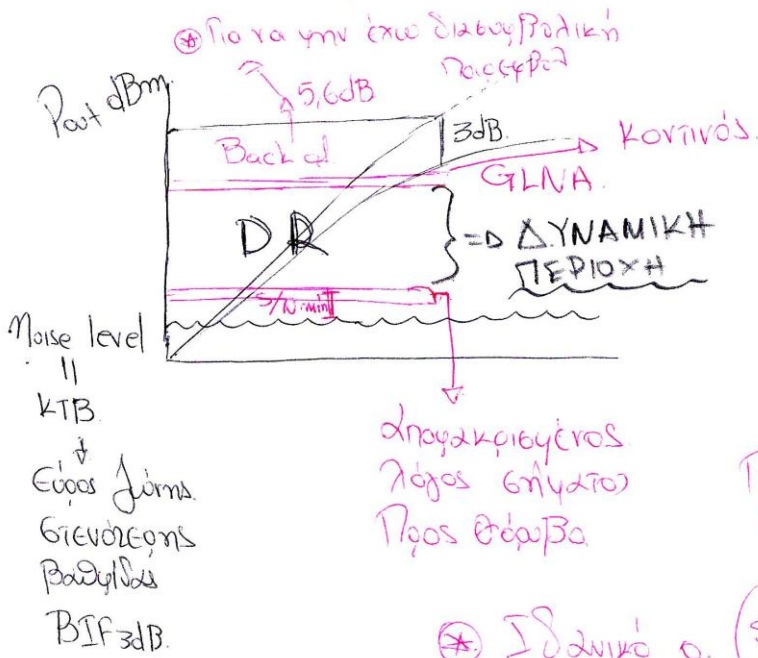 ⊛ Για να μην έχω διασυμβολική
παρεμβολ
5,6dB
Pout dBm.
3dB.
Κοντινός.
GLNA.
DR
=> ΔΥΝΑΜΙΚΗ
ΠΕΡΙΟΧΗ
S/N min
Noise level
=
KTB.
Εύρος ζώνης.
στενότερης
βαθμίδας
BIF 3dB.
Απομακρισμένος
λόγος σήματος
Προς θόρυβο.
⊛ Ιδανικό ο.